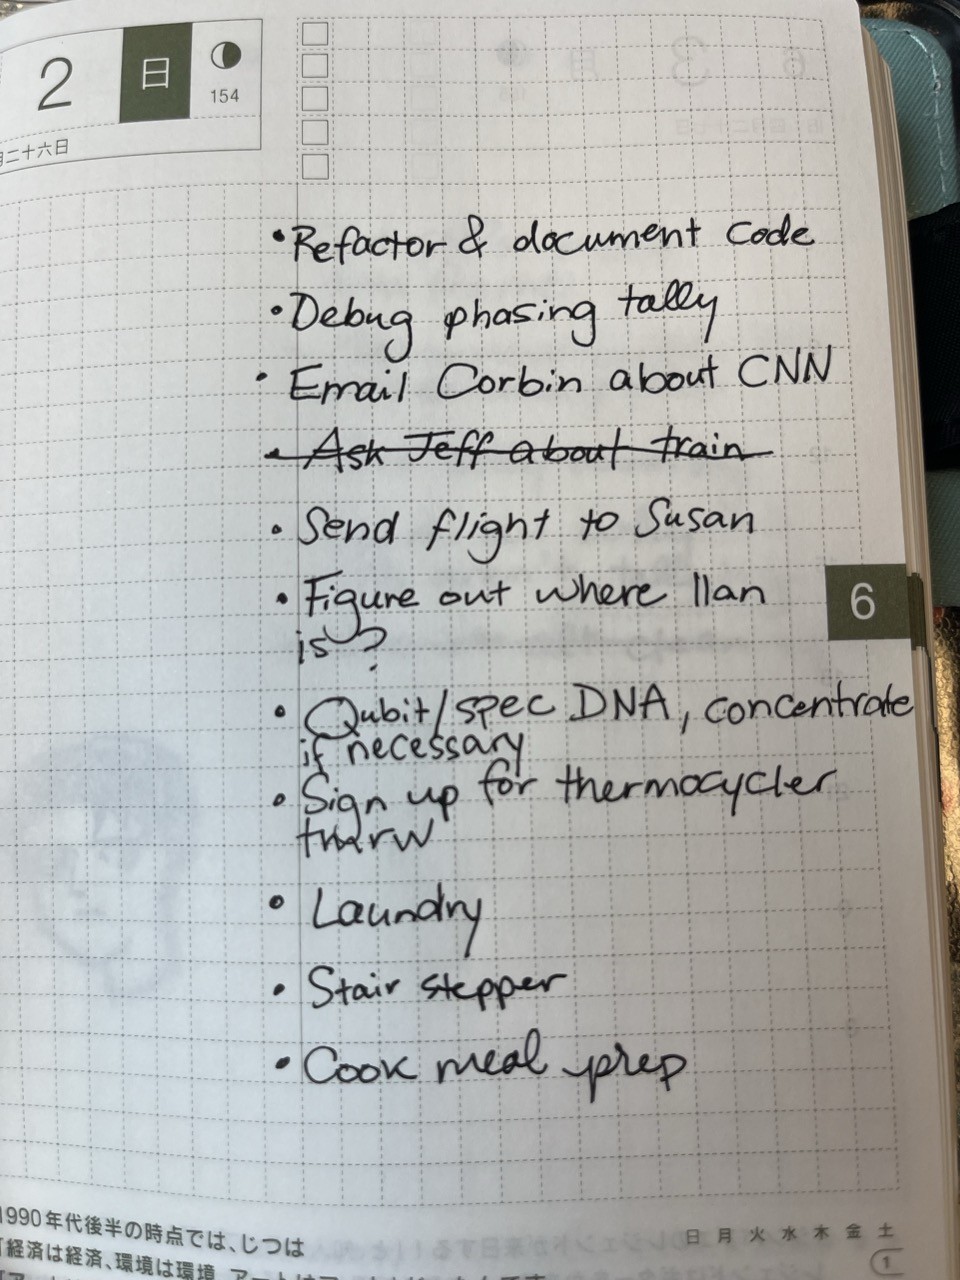 2 日
154
月二十六日
•Refactor & document code
•Debug phasing tally
• Email Corbin about CNN
• Ask Jeff about train
• Send flight to Susan
• Figure out where Ilan
is ?
• Qubit/spec DNA, concentrate
if necessary
• Sign up for thermocycler
• Laundry
• Stair stepper
• Cook meal prep
6
1990年代後半の時点では、じつは
「経済は経済、環境は環境、
日 月 火 水 木 金 土
1